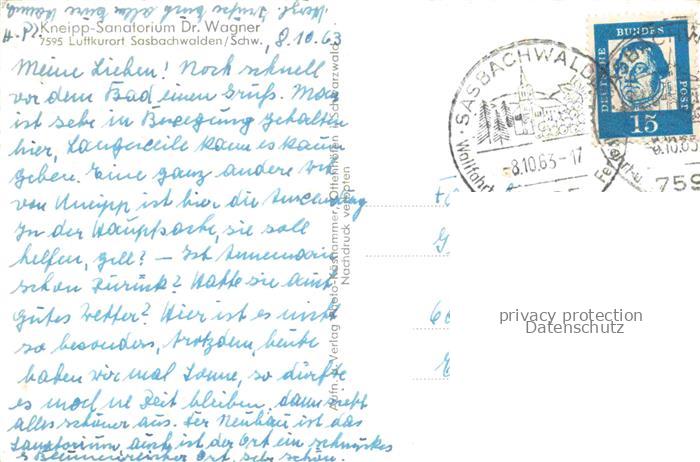 Kneipp-Sanatorium Dr. Wagner
7595 Luftkurort Sasbachwalden/Schw.
8.10.63
Meine Lieben! Noch schnell
vor dem Bad einen Gruß. Man
ist sehr in Bewegung gehalten
hier, Langeweile kann es kaum
geben. Eine ganz andere Art
von Kneipp ist hier die Anwendung
In der Hauptsache, sie soll
helfen, gell? — Ist Annemarie
schon zurück? Hatte sie auch
gutes Wetter? Hier ist es nicht
so besonders, trotzdem, heute
haben wir mal Sonne, so dürfte
es noch ne Zeit bleiben, dann sieht
alles schöner aus. Der Neubau ist das
Sanatorium, auch ist der Ort ein schmuckes
Blumenreicher Ort, sehr schön.
Nachdruck verboten
SASBACHWALD
8.10.63-17
Wallfahrt
DEUTSCHE
BUNDES
POST
15
759
privacy protection
Datenschutz